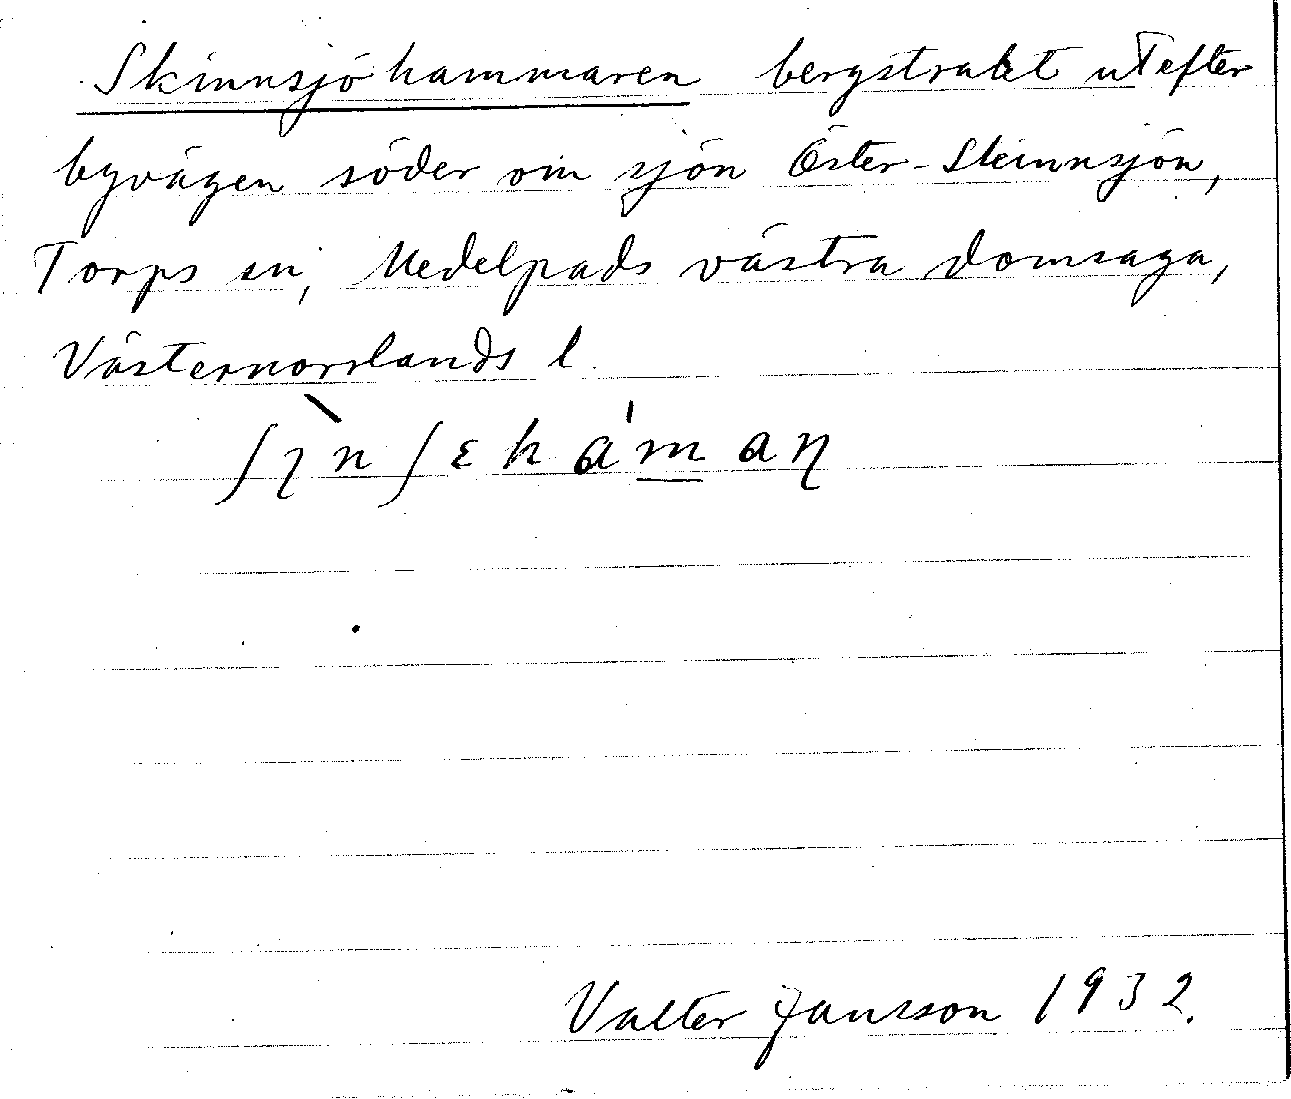 Skinnsjöhammaren bergstrakt utefter
byvägen söder om sjön Öster-Skinnsjön,
Torps sn, Medelpads västra domsaga,
Västernorrlands l.
Valter Jansson 1932.